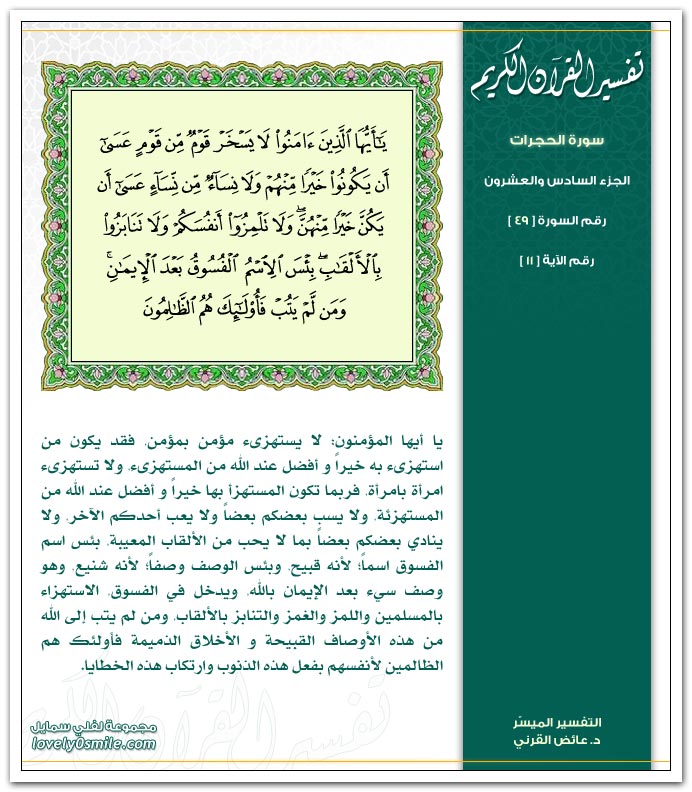 تفسير القرآن الكريم
سورة الحجرات
الجزء السادس والعشرون
رقم السورة [ ٤٩ ]
رقم الآية [ ١١ ]
يَـٰٓأَيُّهَا ٱلَّذِينَ ءَامَنُوا۟ لَا يَسْخَرْ قَوْمٌ مِّن قَوْمٍ عَسَىٰٓ
أَن يَكُونُوا۟ خَيْرًا مِّنْهُمْ وَلَا نِسَآءٌ مِّن نِّسَآءٍ عَسَىٰٓ أَن
يَكُنَّ خَيْرًا مِّنْهُنَّ ۖ وَلَا تَلْمِزُوٓا۟ أَنفُسَكُمْ وَلَا تَنَابَزُوا۟
بِٱلْأَلْقَـٰبِ ۖ بِئْسَ ٱلِٱسْمُ ٱلْفُسُوقُ بَعْدَ ٱلْإِيمَـٰنِ ۚ
وَمَن لَّمْ يَتُبْ فَأُو۟لَـٰٓئِكَ هُمُ ٱلظَّـٰلِمُونَ
يا أيها المؤمنون: لا يستهزىء مؤمن بمؤمن، فقد يكون من
استهزىء به خيراً و أفضل عند الله من المستهزىء، ولا تستهزىء
امرأة بامرأة، فربما تكون المستهزأ بها خيراً و أفضل عند الله من
المستهزئة، ولا يسب بعضكم بعضاً ولا يعب أحدكم الآخر، ولا
ينادي بعضكم بعضاً بما لا يحب من الألقاب المعيبة، بئس اسم
الفسوق اسماً؛ لأنه قبيح، وبئس الوصف وصفاً؛ لأنه شنيع، وهو
وصف سيء بعد الإيمان بالله، ويدخل في الفسوق، الاستهزاء
بالمسلمين واللمز والغمز والتنابز بالألقاب، ومن لم يتب إلى الله
من هذه الأوصاف القبيحة و الأخلاق الذميمة فأولئك هم
الظالمين لأنفسهم بفعل هذه الذنوب وارتكاب هذه الخطايا.
تفسير القرآن الكريم
التفسير الميسّر
د. عائض القرني
مجموعة لفلي سمايل
lovely0smile.com